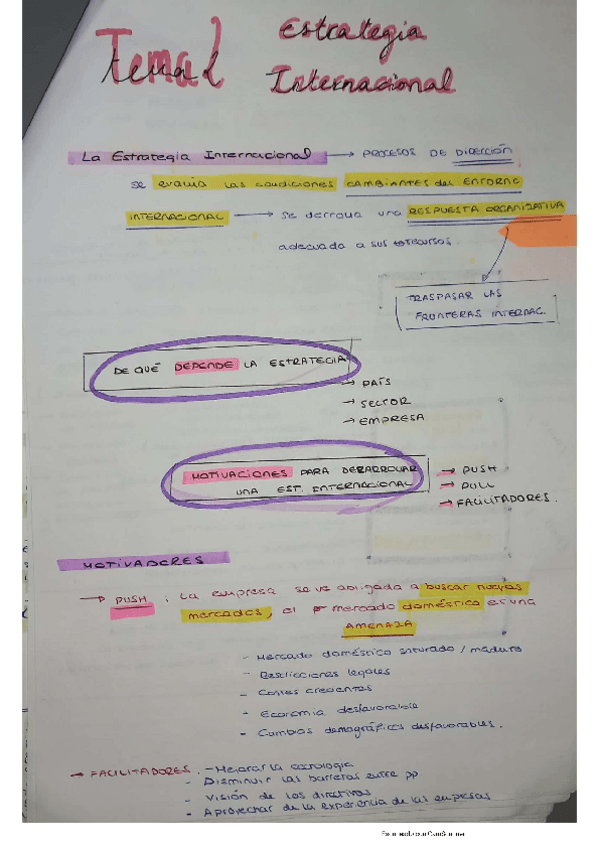 Tema 2
Estrategia
Internacional
La Estrategia Internacional → PROCESOS DE DIRECCIÓN
se evalúa las condiciones CAMBIANTES del ENTORNO
INTERNACIONAL → se desarrolla una RESPUESTA ORGANIZATIVA
adecuada a sus recursos.
TRASPASAR LAS
FRONTERAS INTERNAC.
DE QUÉ DEPENDE LA ESTRATEGIA
→ PAÍS
→ SECTOR
→ EMPRESA
MOTIVACIONES PARA DESARROLLAR → PUSH
UNA EST. INTERNACIONAL → PULL
→ FACILITADORES.
MOTIVADORES
→ PUSH : La empresa se ve obligada a buscar nuevos
mercados, el mercado doméstico es una
AMENAZA
- Mercado doméstico saturado / maduro
- Restricciones legales
- Costes crecientes
- Economía desfavorable
- Cambios demográficos desfavorables.
→ FACILITADORES. - Mejorar la tecnología
- Disminuir las barreras entre pp
- Visión de los directivos
- Aprovechar de la experiencia de las empresas